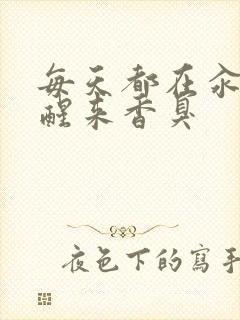 每天都在汆
醒来香臭
夜色下的寫手